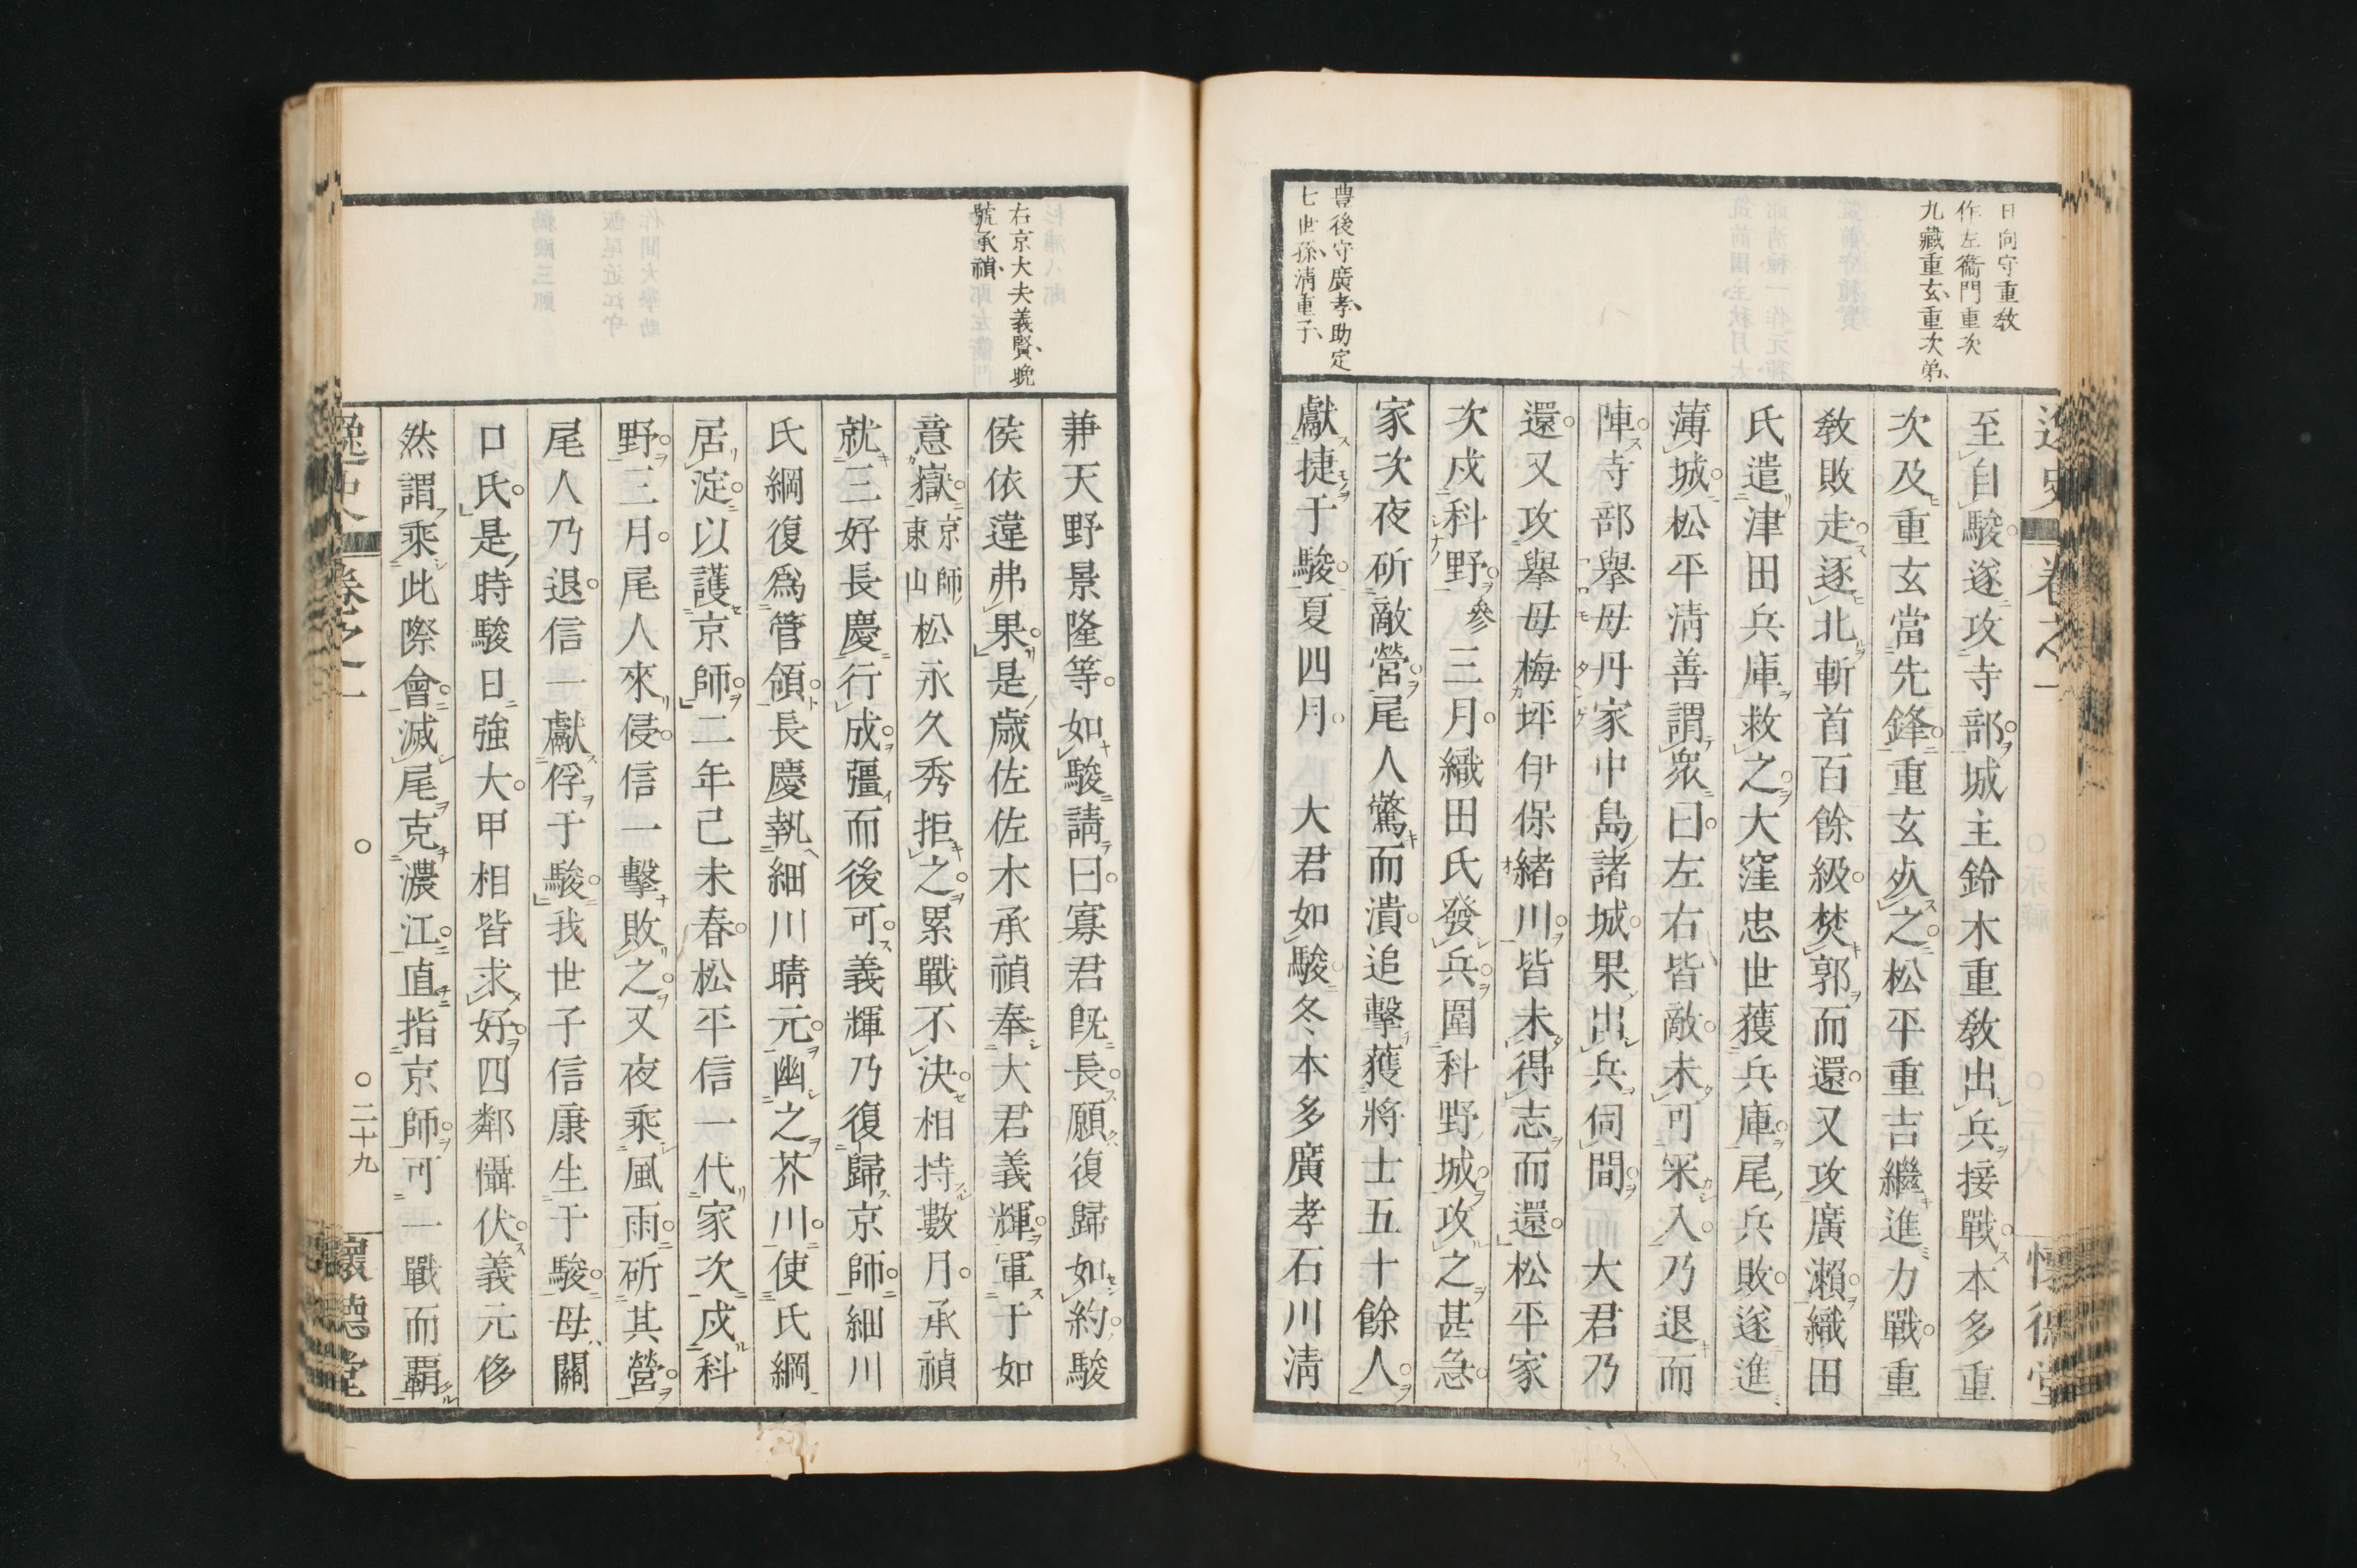 日向守重教
作左衞門重次
九藏重玄、重次弟、
豊後守廣孝、助定
七世孫、淸重子、
至自駿遂攻寺部城主鈴木重教出兵接戰本多重
次及重玄當先鋒重玄死之松平重吉繼進力戰重
教敗走逐北斬首百餘級焚郭而還又攻廣瀨織田
氏遣津田兵庫救之大窪忠世獲兵庫尾兵敗遂進
薄城松平淸善謂衆曰左右皆敵未可罙入乃退而
陣寺部擧母丹家中島諸城果出兵伺間　大君乃
還又攻擧母梅坪伊保緖川皆未得志而還松平家
次戍科野參三月織田氏發兵圍科野城攻之甚急
家次夜斫敵營尾人驚而潰追擊獲將士五十餘人
獻捷于駿夏四月　大君如駿冬本多廣孝石川淸
右京大夫義賢、晩
號承禎、
兼天野景隆等如駿請曰寡君旣長願復歸如約駿
侯依違弗果是歲佐佐木承禎奉大君義輝軍于如
意嶽京師東山松永久秀拒之累戰不決相持數月承禎
就三好長慶行成彊而後可義輝乃復歸京師細川
氏綱復爲管領長慶執細川晴元幽之芥川使氏綱
居淀以護京師二年己未春松平信一代家次戍科
野三月尾人來侵信一擊敗之又夜乘風雨斫其營
尾人乃退信一獻俘于駿我世子信康生于駿母關
口氏是時駿日強大甲相皆求好四鄰懾伏義元侈
然謂乘此際會滅尾克濃江直指京師可一戰而覇
逸史
卷之一
二十九
懷德堂